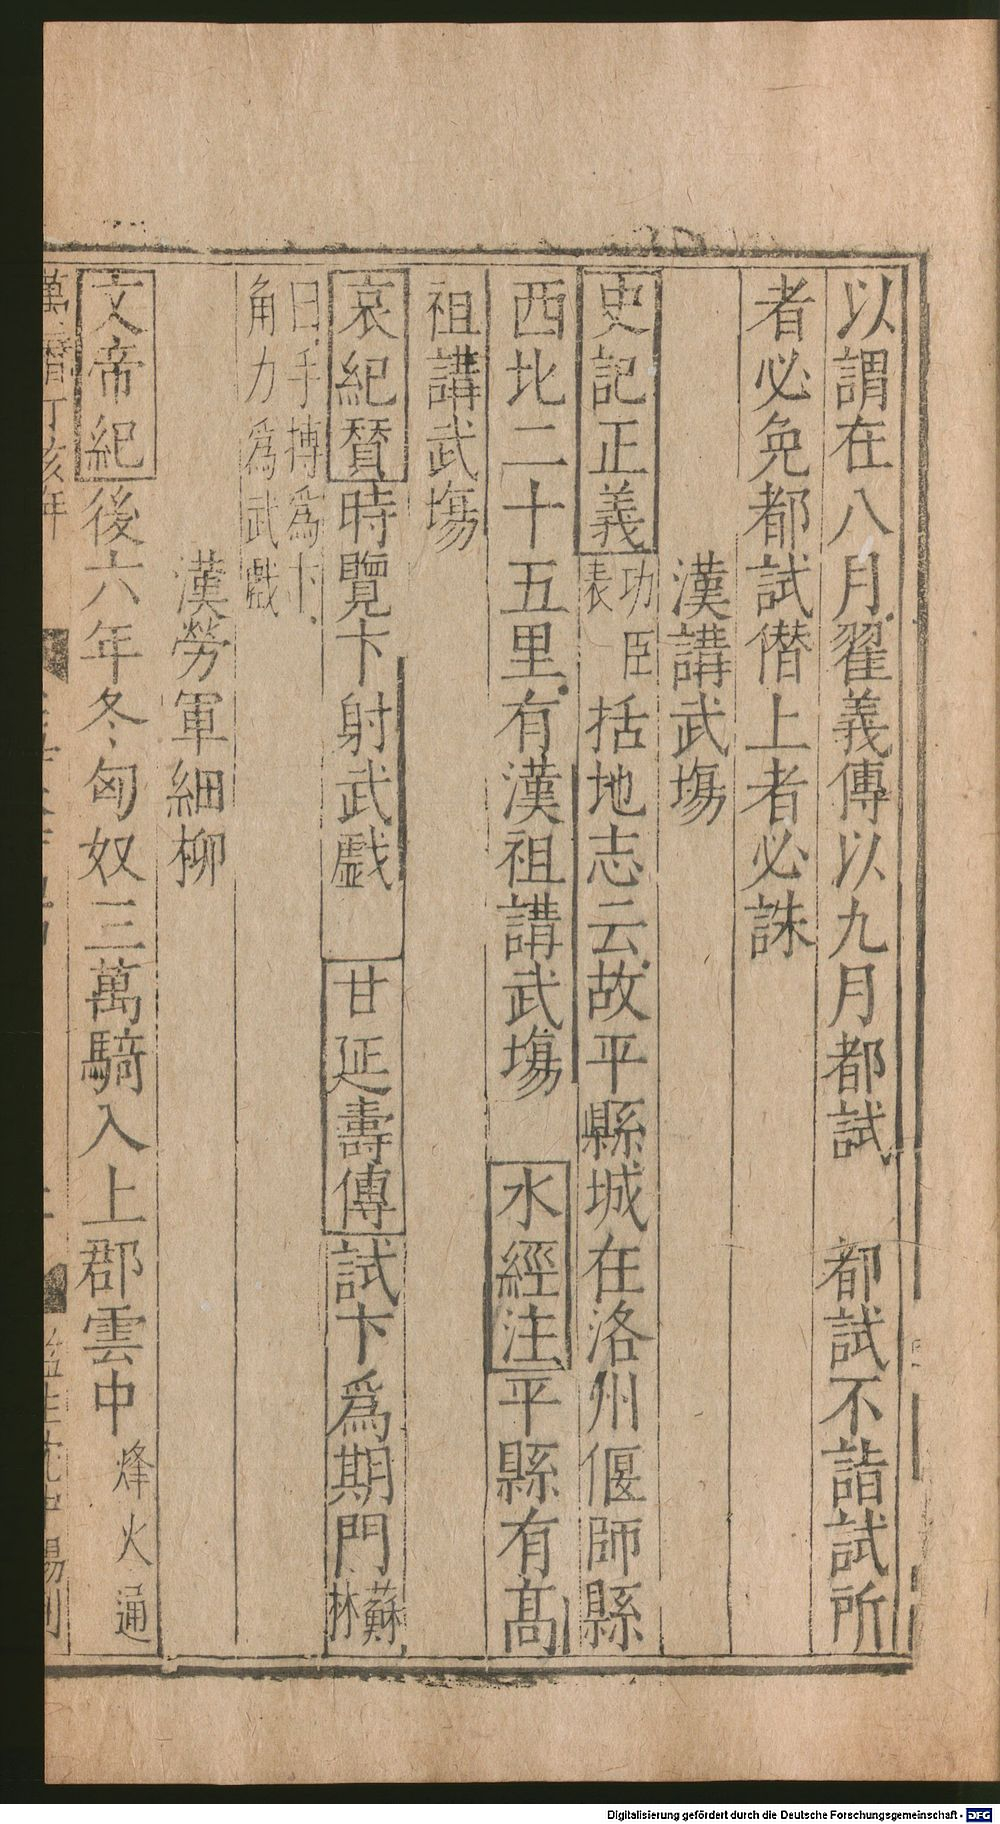 以謂在八月翟義傳以九月都試　都試不詣試所
者必免都試僭上者必誅
漢講武塲
史記正義功臣表括地志云故平縣城在洛州偃師縣
西北二十五里有漢祖講武塲　水經注平縣有髙
祖講武塲
哀紀賛時覽卞射武戲　甘延壽傳試卞爲期門蘇林
曰手搏爲卞
角力爲武戲
漢勞軍細柳
文帝紀後六年冬匈奴三萬騎入上郡雲中烽火通
萬曆丁亥年
Digitalisierung gefördert durch die Deutsche Forschungsgemeinschaft - DFG